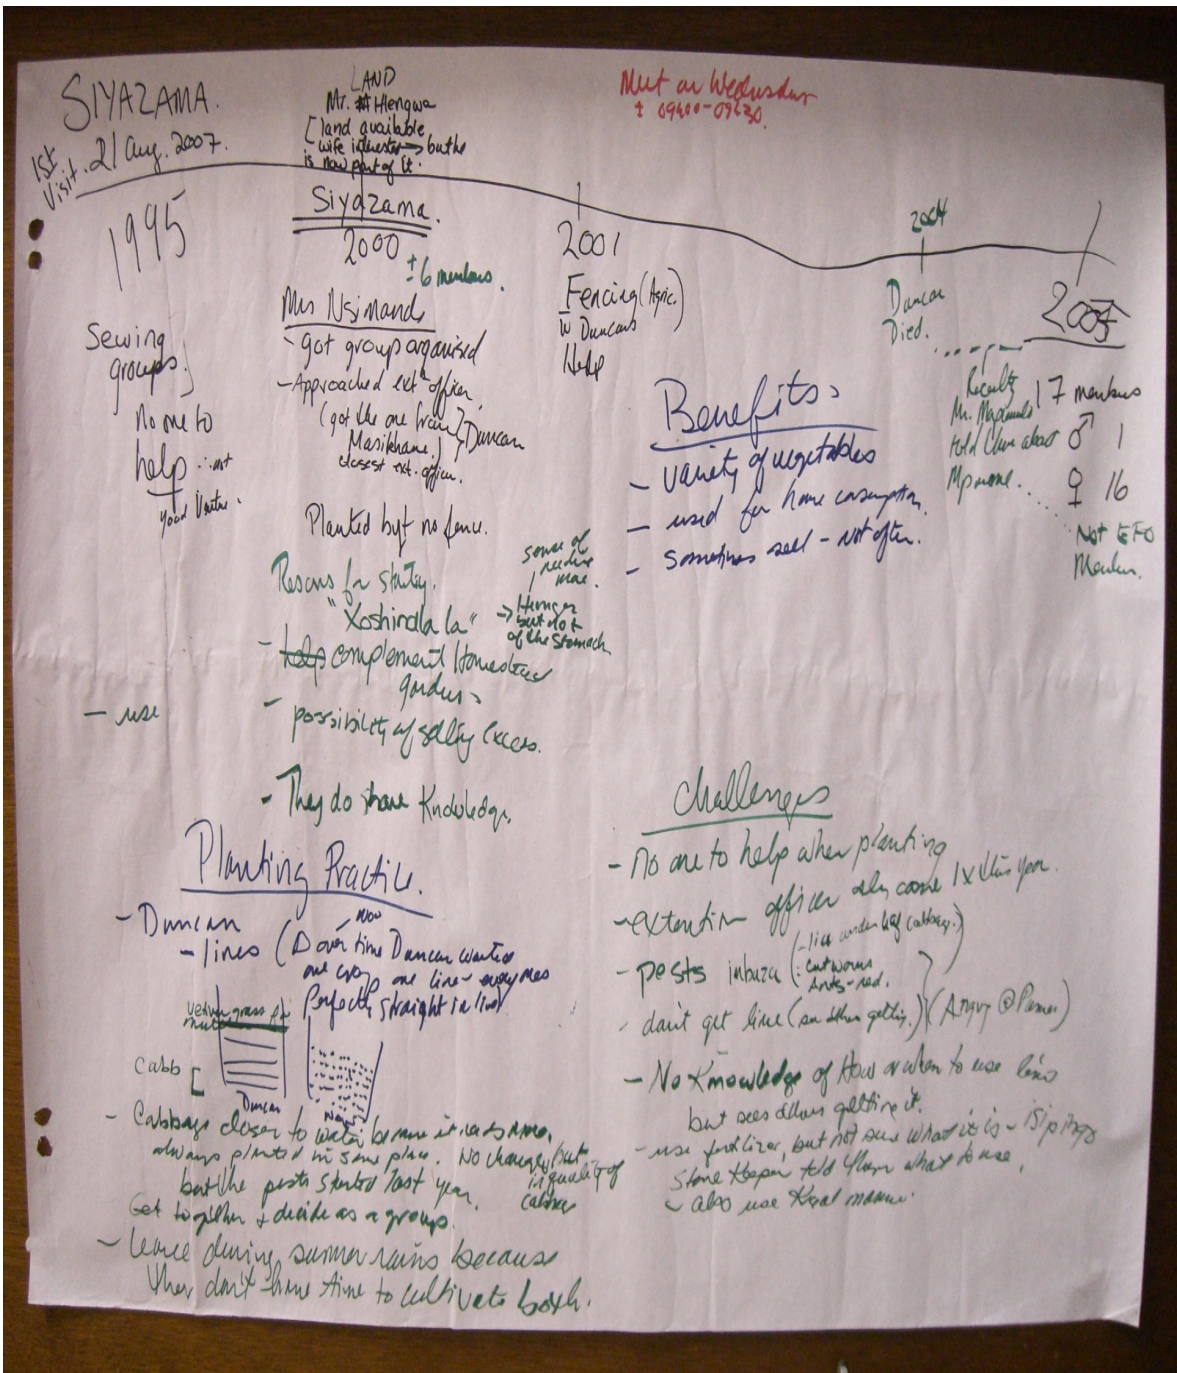 SIYAZAMA.
1st Visit. 21 Aug. 2007.
LAND
Mr. Hlengwa
[land available
wife interester → but he
is now part of it.
Meet on Wednesday
± 09h00-09h30.
1995
Sewing
groups.
No one to
help
Siyazama.
2000
± 6 members.
Mrs Nsimande
- got group organised
- Approached extn officer
(got the one from
Masikhane.) } Duncan
closest ext. officer.
Planted but no fence.
Reasons for starting.
"Xoshindlala"
→ Hunger
but not
of the stomach
sense of
needing
more.
- help complement Homestead
gardens
- possibility of selling excess.
- They do share knowledge.
- use
2001
Fencing (Agric.)
w Duncans
Help
2004
Duncan
Died.
2007
17 members
♂ 1
♀ 16
Not EFO
Member.
Recently
Mr.
told them about
Benefits:
- variety of vegetables
- used for home consumption.
- sometimes sell - not often.
Planting Practice.
- Duncan
- lines (Δ over time Duncan wanted
now
one crop one line - everyones
Perfectly straight in line)
vetiver grass for
Cabb [
Duncan
Now
- Cabbage closer to water because it needs more,
always planted in same place. No change,
but the pests started last year.
but
in quality of
cabbage
Get together & decide as a group.
- leave during summer rains because
they don't have time to cultivate both.
Challenges
- No one to help when planting
- extention officer only come 1x this year.
- pests inbuza (- lice under leaf cabbage.)
: cutworms
Ants - red.
- don't get lime (see others getting.) (Angry @
- No Knowledge of How or when to use lime
but sees others getting it.
- use fertilizer, but not sure what it is -
Store Keeper told them what to use,
- also use Kraal manure.